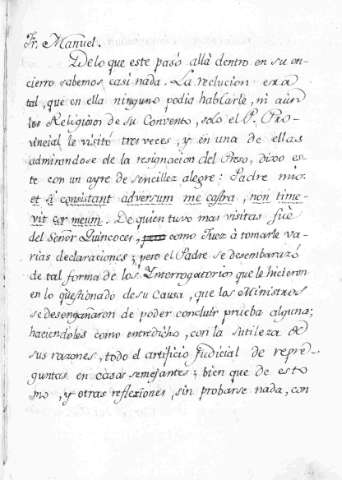 Fr. Manuel.
De lo que este pasó allá dentro en su en-
cierro sabemos casi nada. La reclucion era
tal, que en ella ninguno podia hablarle, ni aun
los Religiosos de su Convento, solo el P. Pro-
vincial le visitó tres veces, y en una de ellas
admirandose de la resignacion del Preso, dixo es-
te con un ayre de sencillez alegre: Padre mio:
et si consistant adversum me castra, non time-
vit cor meum. De quien tuvo mas visitas fué
del Señor Quincoces, como Juez à tomarle va-
rias declaraciones; pero el Padre se desembarazó
de tal forma de los Interrogatorios que le hicieron
en lo qüestionado de su Causa, que los Ministros
se desengañaron de poder concluir prueba alguna;
haciendoles como entredicho, con la sutileza de
sus razones, todo el artificio judicial de repre-
guntas en casos semejantes; bien que de esto
mo, y otras reflexiones, sin probarse nada, con